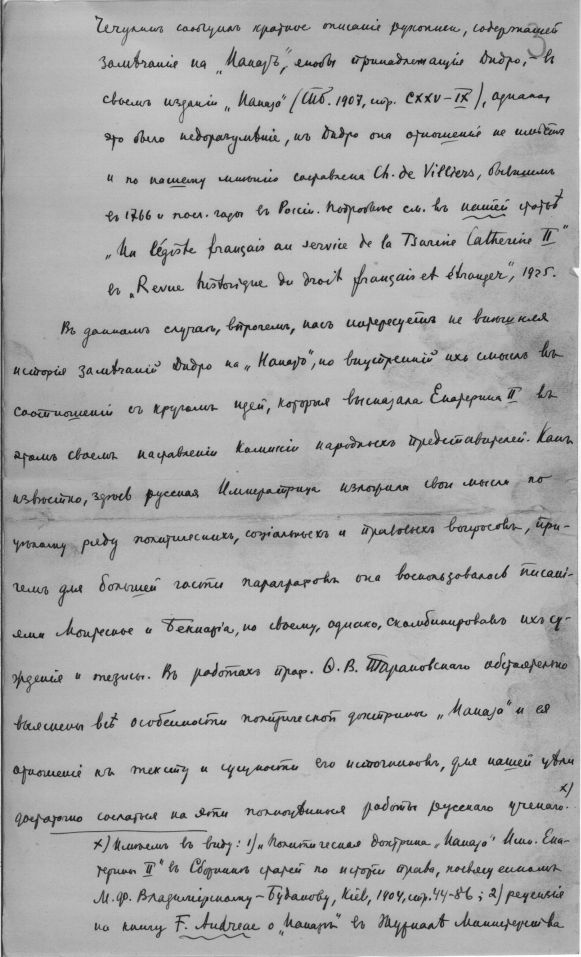 3
Чечулинъ сообщилъ краткое описаніе рукописи, содержащей
замѣчанія на „Наказъ“, якобы принадлежащія Дидро, – въ
своемъ изданіи „Наказа“ (Спб. 1907, стр. CXXV–IX), однако,
это было недоразумѣніе, къ Дидро она отношенія не имѣетъ
и по нашему мнѣнію составлена Ch. de Villiers, бывшимъ
въ 1766 и посл. годы въ Россіи. Подробнѣе см. въ нашей статьѣ
„Un légiste français au service de la Tsarine Catherine II“
въ „Revue historique du droit français et étranger“, 1925.
Въ данномъ случаѣ, впрочемъ, насъ интересуетъ не внѣшняя
исторія замѣчаній Дидро на „Наказъ“, но внутренній ихъ смыслъ въ
соотношеніи съ кругомъ идей, которыя высказала Екатерина II въ
этомъ своемъ наставленіи Комиссіи народныхъ представителей. Какъ
извѣстно, здѣсь русская Императрица изложила свои мысли по
цѣлому ряду политическихъ, соціальныхъ и правовыхъ вопросовъ, при-
чемъ для большей части параграфовъ она воспользовалась писані-
ями Монтескье и Беккаріа, по своему, однако, скомбинировавъ ихъ су-
жденія и тезисы. Въ работахъ проф. Ѳ. В. Тарановскаго обстоятельно
выяснены всѣ особенности политической доктрины „Наказа“ и ея
отношеніе къ тексту и сущности его источниковъ, для нашей цѣли
достаточно сослаться на эти работы русскаго ученаго. х)
х) Имѣемъ въ виду: 1) „Политическая доктрина „Наказа“ Имп. Ека-
терины II“ въ Сборникѣ статей по исторіи права, посвящ
М. Ф. Владимірскому–Буданову, Кіев, 1904, стр. 44-86; 2) рецензія
на книгу F. Andreae о „Наказѣ“ въ Журналѣ Министерства